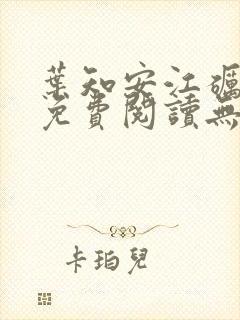 葉知安江礪
免費閱讀無
卡珀兒